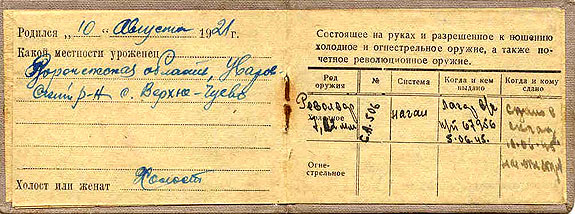 Родился „10“ Августа 1921г.
Какой местности уроженец
Воронежская область, Уваров-
ский р-н с. Верхне-Чуево
Холост или женат Холост
Состоящее на руках и разрешенное к ношению
холодное и огнестрельное оружие, а также по-
четное революционное оружие.
Род оружия
№
Система
Когда и кем выдано
Когда и кому сдано
Револьвер
Холодное
СА 506
наган
п/п 67956
5.06.45.
Огне-
стрельное